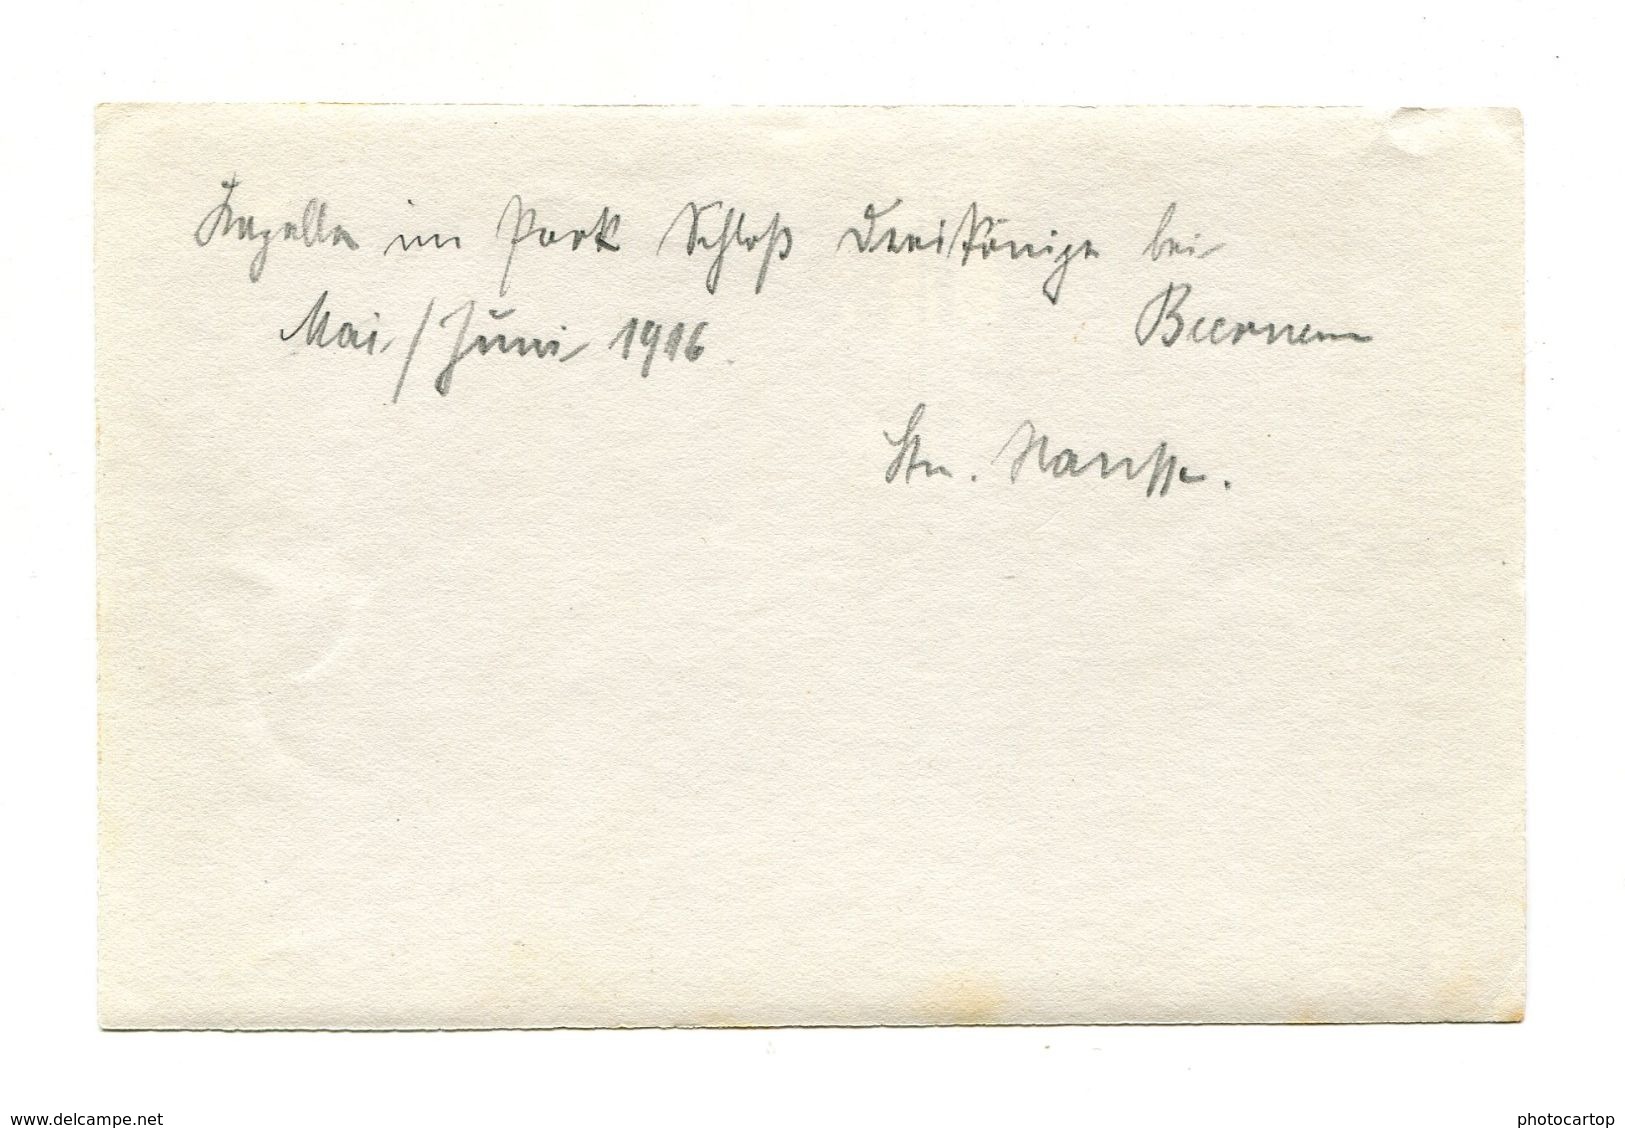 Kapelle im Park Schloß Dreikönige bei
Beernem
Mai/Juni 1916.
www.delcampe.net
photocartop